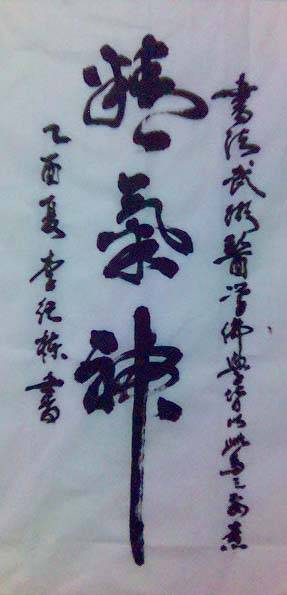 書法武術醫学佛學皆以此為之要素
精氣神
乙酉夏 李纪栋書